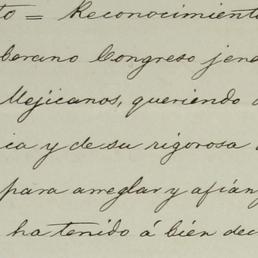 to = Reconocimiento
berano Congreso jene
Mejicanos, queriendo
ica y de su rigorosa
para arreglar y afian
ha tenido á bién dec